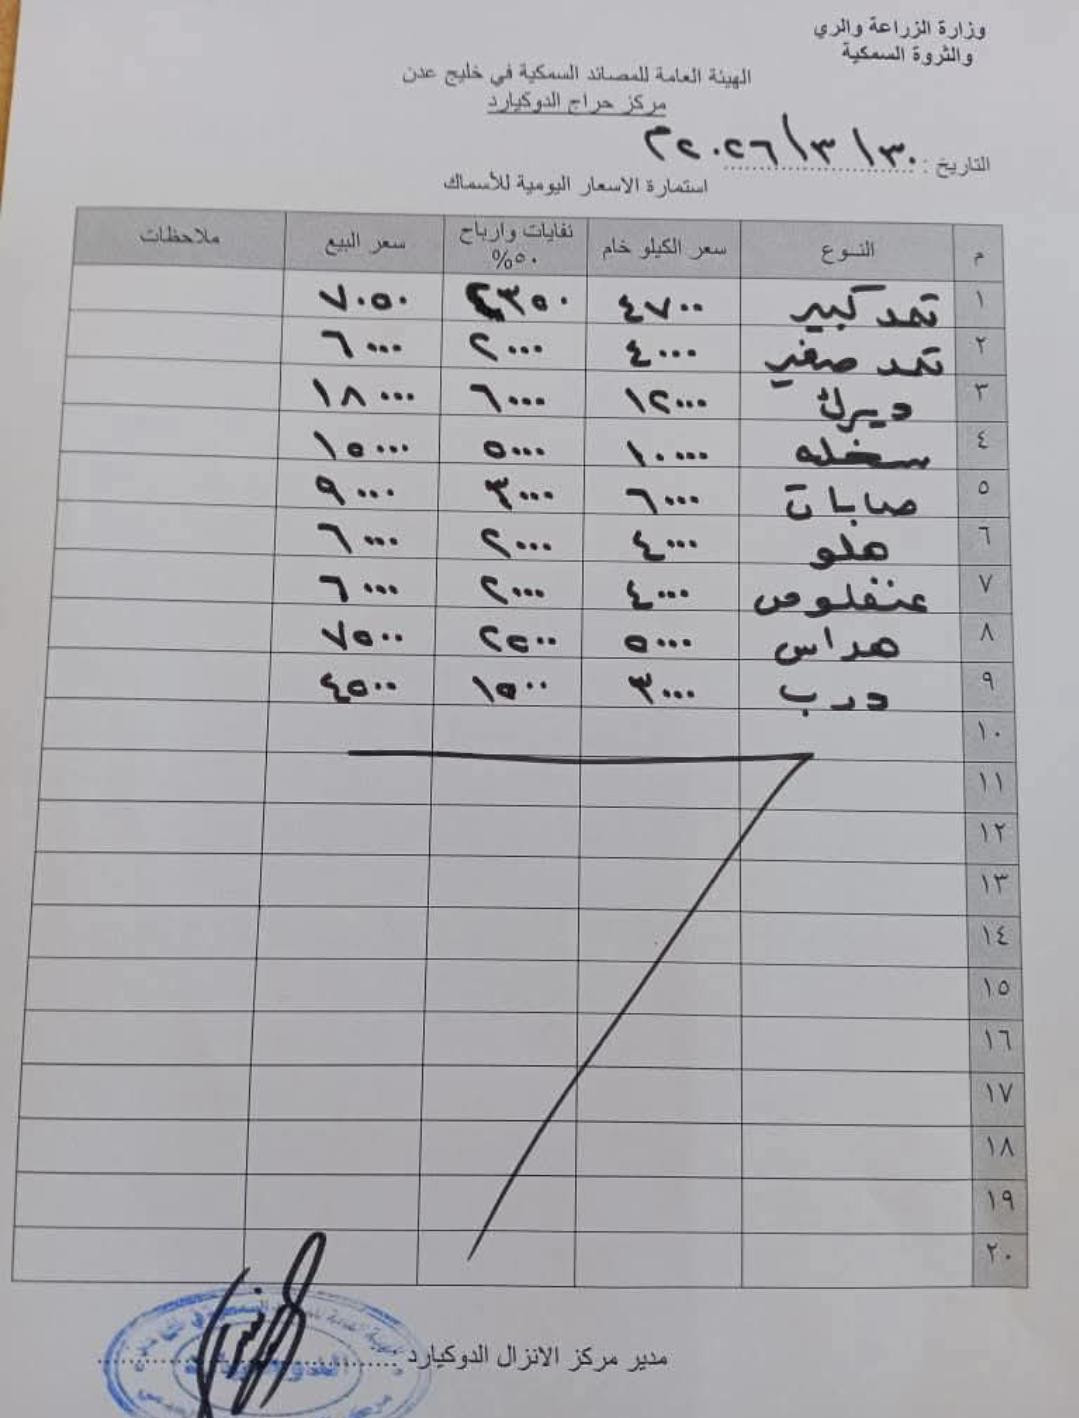 وزارة الزراعة والري
والثروة السمكية
الهيئة العامة للمصائد السمكية في خليج عدن
مركز حراج الدوكيارد
التاريخ : ٣٠ / ٣ / ٢٠٢٦م
استمارة الاسعار اليومية للأسماك
م النوع سعر الكيلو خام نفايات وارباح ٥٠% سعر البيع ملاحظات
١ تمد كبير ٤٧٠٠ ٢٣٥٠ ٧٠٥٠
٢ تمد صغير ٤٠٠٠ ٢٠٠٠ ٦٠٠٠
٣ ديرك ١٢٠٠٠ ٦٠٠٠ ١٨٠٠٠
٤ سخله ١٠٠٠٠ ٥٠٠٠ ١٥٠٠٠
٥ صابات ٦٠٠٠ ٣٠٠٠ ٩٠٠٠
٦ هلو ٤٠٠٠ ٢٠٠٠ ٦٠٠٠
٧ عنفلوص ٤٠٠٠ ٢٠٠٠ ٦٠٠٠
٨ هداس ٥٠٠٠ ٢٥٠٠ ٧٥٠٠
٩ درب ٣٠٠٠ ١٥٠٠ ٤٥٠٠
١٠
١١
١٢
١٣
١٤
١٥
١٦
١٧
١٨
١٩
٢٠
مدير مركز الانزال الدوكيارد